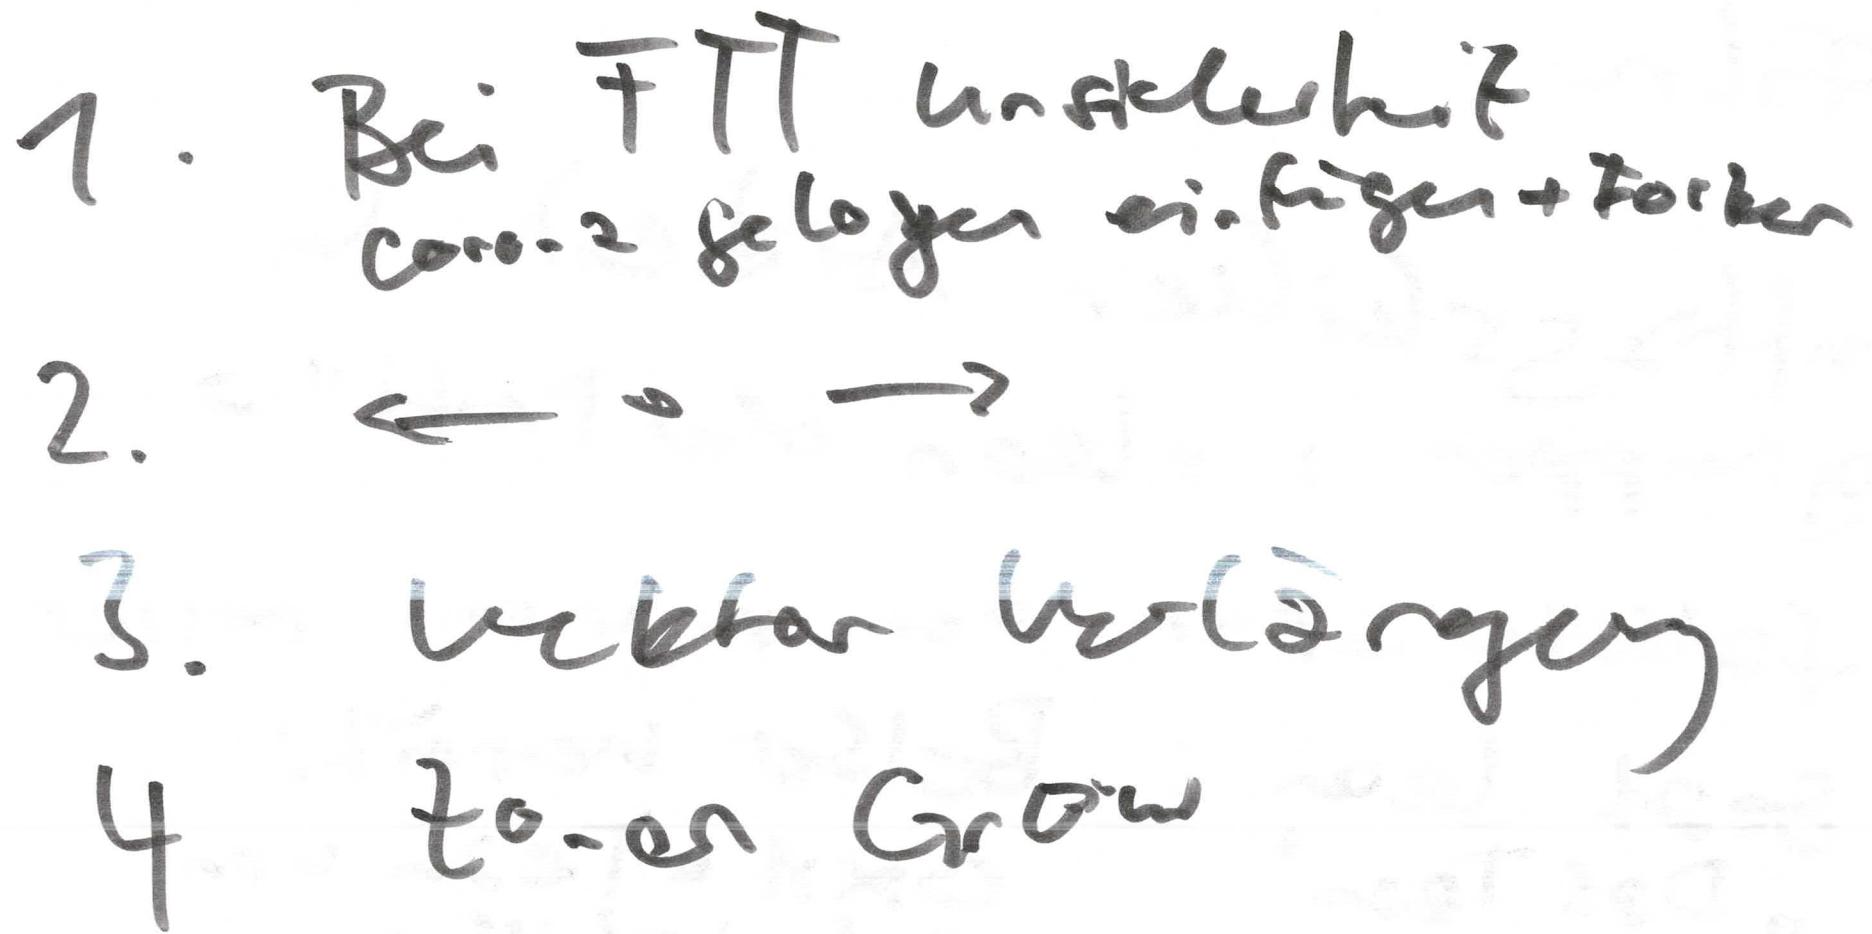 1. Bei FTT Unsicherheit
Corona gelogen einfügen +
2. ← • →
3. Vektor Verlängern
4 Zonen